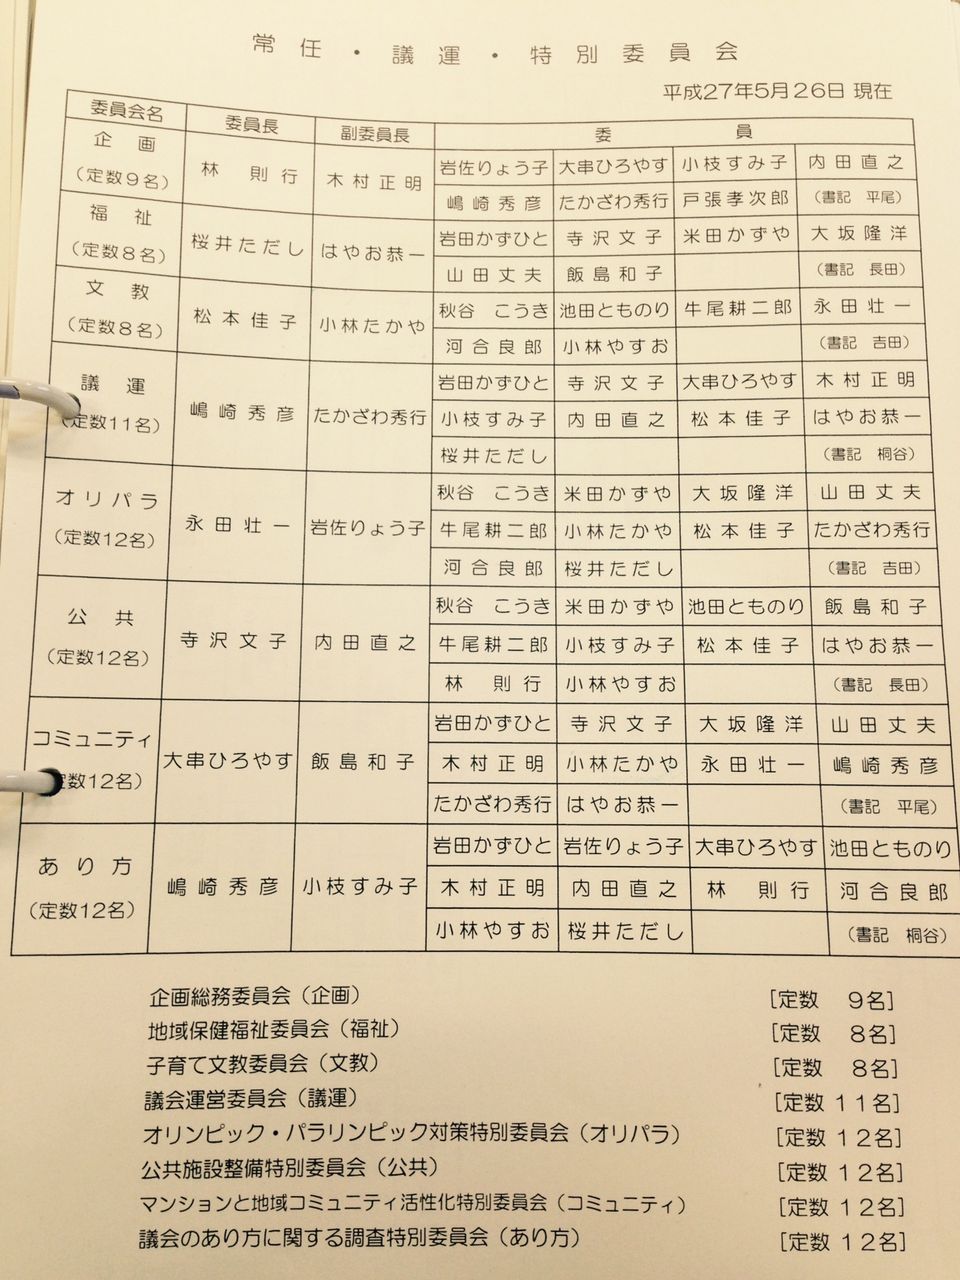 常任・議運・特別委員会
平成27年5月26日 現在
委員会名 委員長 副委員長 委員
企画 (定数9名) 林 則行 木村正明 岩佐りょう子 大串ひろやす 小枝すみ子 内田直之
嶋崎秀彦 たかざわ秀行 戸張孝次郎 (書記 平尾)
福祉 (定数8名) 桜井ただし はやお恭一 岩田かずひと 寺沢文子 米田かずや 大坂隆洋
山田丈夫 飯島和子 (書記 長田)
文教 (定数8名) 松本佳子 小林たかや 秋谷 こうき 池田とものり 牛尾耕二郎 永田壮一
河合良郎 小林やすお (書記 吉田)
議運 (定数11名) 嶋崎秀彦 たかざわ秀行 岩田かずひと 寺沢文子 大串ひろやす 木村正明
小枝すみ子 内田直之 松本佳子 はやお恭一
桜井ただし (書記 桐谷)
オリパラ (定数12名) 永田壮一 岩佐りょう子 秋谷 こうき 米田かずや 大坂隆洋 山田丈夫
牛尾耕二郎 小林たかや 松本佳子 たかざわ秀行
河合良郎 桜井ただし (書記 吉田)
公共 (定数12名) 寺沢文子 内田直之 秋谷 こうき 米田かずや 池田とものり 飯島和子
牛尾耕二郎 小枝すみ子 松本佳子 はやお恭一
林 則行 小林やすお (書記 長田)
コミュニティ 定数12名) 大串ひろやす 飯島和子 岩田かずひと 寺沢文子 大坂隆洋 山田丈夫
木村正明 小林たかや 永田壮一 嶋崎秀彦
たかざわ秀行 はやお恭一 (書記 平尾)
あり方 (定数12名) 嶋崎秀彦 小枝すみ子 岩田かずひと 岩佐りょう子 大串ひろやす 池田とものり
木村正明 内田直之 林 則行 河合良郎
小林やすお 桜井ただし (書記 桐谷)
企画総務委員会(企画) [定数 9名]
地域保健福祉委員会(福祉) [定数 8名]
子育て文教委員会(文教) [定数 8名]
議会運営委員会(議運) [定数 11名]
オリンピック・パラリンピック対策特別委員会(オリパラ) [定数 12名]
公共施設整備特別委員会(公共) [定数 12名]
マンションと地域コミュニティ活性化特別委員会(コミュニティ) [定数 12名]
議会のあり方に関する調査特別委員会(あり方) [定数 12名]